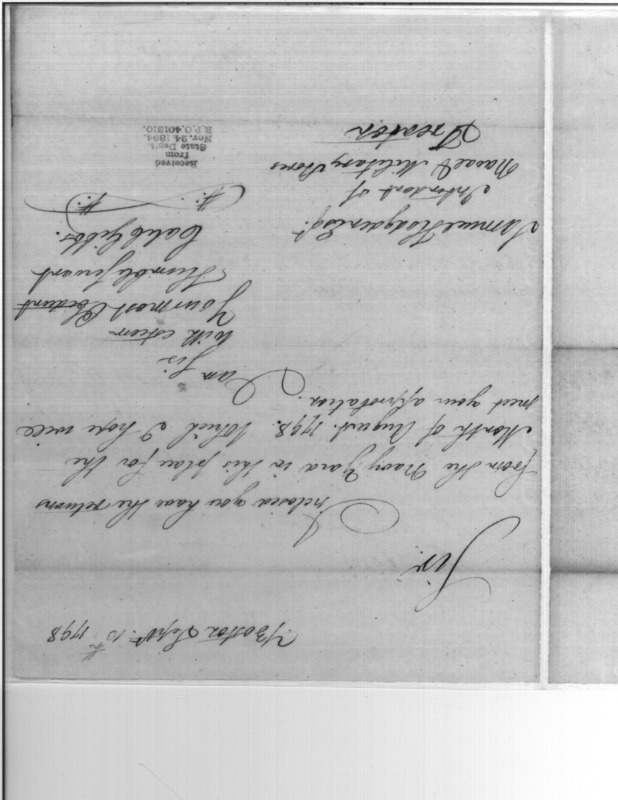 Boston Sept. 10th 1798
Sir.
Inclosed you have the returns
from the Navy Yard in this place for the
Month of August. 1798. Which I hope will
meet your approbation.
I am
Sir
With esteem
Your most Obedient
Humble Servant
Caleb Gibbs.
Samuel Hodgdon Esqr.
Intendent of
Naval & Military Stores
Trenton
Received
from
State Dep't.
Nov. 24, 1894.
R.P.O. 401310.